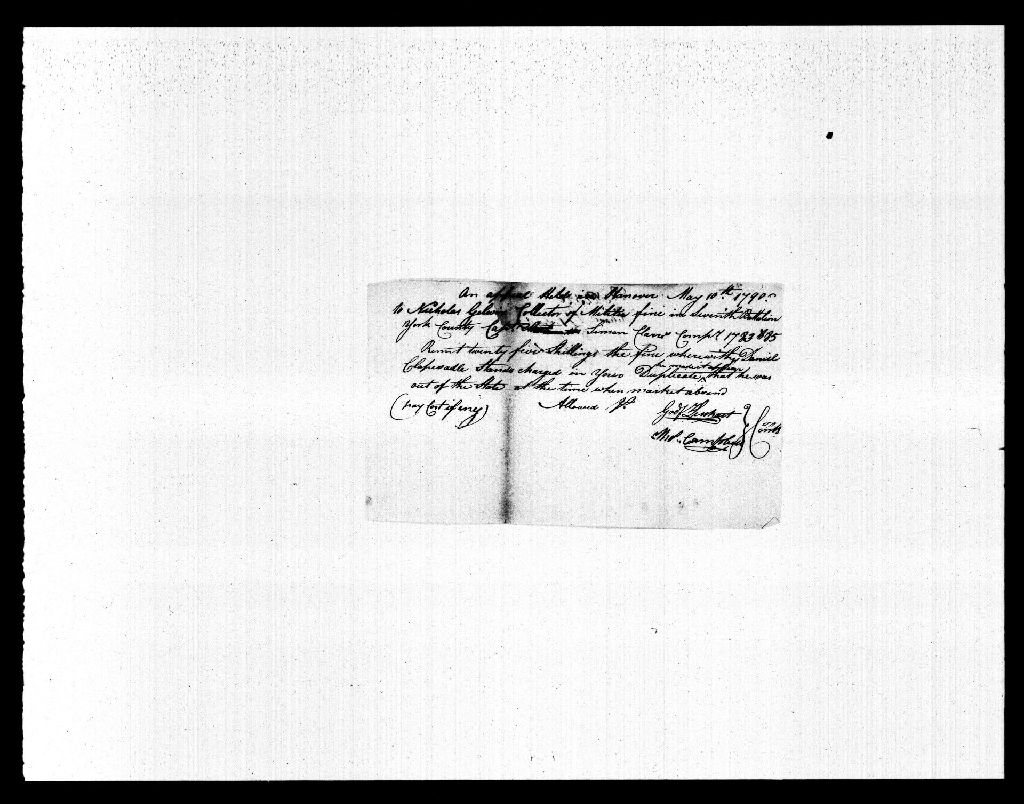 An appeal Held at Hanover May 10th 1790
to Nicholas Gelwix Collector of Militia fine in Seventh Batalion
York County Capt Simon Clare Compy 1783 & 85
Remit twenty five Shillings the fine wherewith Daniel
Clapsadle Stands charged in Your Duplicate, that he was
out of the State at the time when market absend
(pay Cost if any) Allowed Pr Godf Lenhart
Thos. Campbell